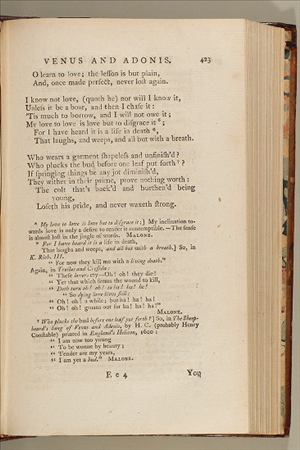 VENUS AND ADONIS. 423
O learn to love; the leſſon is but plain,
And, once made perfect, never loſt again.
I know not love, (quoth he) nor will I know it,
Unleſs it be a boar, and then I chaſe it:
'Tis much to borrow, and I will not owe it;
My love to love is love but to diſgrace it;
For I have heard it is a life in death,
That laughs, and weeps, and all but with a breath.
Who wears a garment ſhapeleſs and unfiniſh'd?
Who plucks the bud before one leaf put forth?
If ſpringing things be any jot diminiſh'd,
They wither in their prime, prove nothing worth:
The colt that's back'd and burthen'd being
young,
Loſeth his pride, and never waxeth ſtrong.
My love to love is love but to diſgrace it;] My inclination to-
wards love is only a deſire to render it contemptible.—The ſenſe
is almoſt loſt in the jingle of words. MALONE.
For I have heard it is a life in death,
That laughs and weeps, and all but with a breath.] So, in
K. Rich. III.
" For now they kill me with a living death."
Again, in Troilus and Creſſida:
" Theſe lovers cry—Oh! oh! they die!
" Yet that which ſeems the wound to kill,
" Doth turn oh! oh! to ha! ha! he!
" So dying love lives ſtill:
" Oh! oh! a while; but ha! ha! ha!
" Oh! oh! groans out for ha! ha! ha!"
MALONE.
Who plucks the bud before one leaf put forth?] So, in The Shep-
heard's Song of Venus and Adonis, by H. C. (probably Henry
Conſtable) printed in England's Helicon, 1600:
" I am now too young
" To be wonne by beauty;
" Tender are my years,
" I am yet a bud." MALONE.
E e 4 You